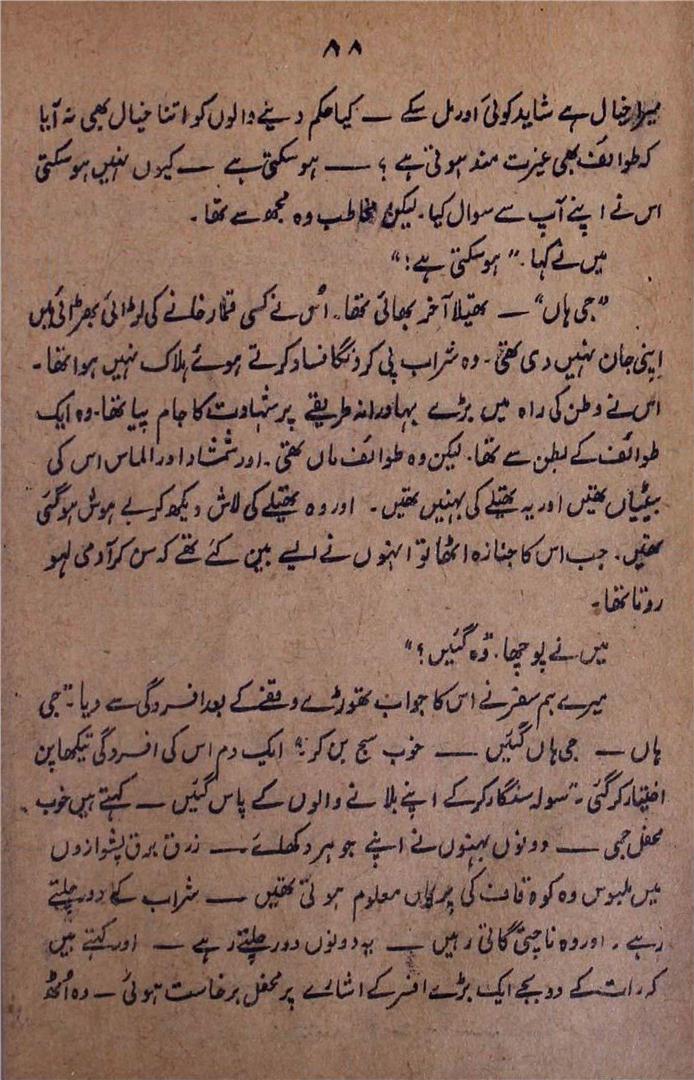 ۸۸
میرا خیال ہے شاید کوئی اور مل سکے — کیا حکم دینے والوں کو اتنا خیال بھی نہ آیا
کہ طوائف بھی غیرت مند ہوتی ہے ؟ — ہو سکتی ہے — کیوں نہیں ہو سکتی
اس نے اپنے آپ سے سوال کیا۔ لیکن مخاطب وہ مجھ سے تھا۔
میں نے کہا۔ ”ہو سکتی ہے!“
”جی ہاں“ — تھیلا آخر بھائی تھا۔ اُس نے کسی قمار خانے کی لڑائی بھڑائی میں
اپنی جان نہیں دی تھی۔ وہ شراب پی کر دنگا فساد کرتے ہوئے ہلاک نہیں ہوا تھا۔
اس نے وطن کی راہ میں بڑے بہادرانہ طریقے پر شہادت کا جام پیا تھا۔ وہ ایک
طوائف کے بطن سے تھا۔ لیکن وہ طوائف ماں تھی۔ اور شمشاد اور الماس اس کی
بیٹیاں تھیں اور یہ تھیلے کی بہنیں تھیں۔ اور وہ تھیلے کی لاش دیکھ کر بے ہوش ہو گئی
تھیں۔ جب اس کا جنازہ اٹھا تو انہوں نے ایسے بین کئے تھے کہ سن کر آدمی لہو
روتا تھا۔
میں نے پوچھا۔ ”وہ گئیں؟“
میرے ہم سفر نے اس کا جواب تھوڑے وقفے کے بعد افسردگی سے دیا۔ ”جی
ہاں — جی ہاں گئیں — خوب سج بن کر؟“ ایک دم اس کی افسردگی تیکھا پن
اختیار کر گئی۔ ”سولہ سنگار کرکے اپنے بلانے والوں کے پاس گئیں — کہتے ہیں خوب
محفل جمی — دونوں بہنوں نے اپنے جوہر دکھلائے — زرق برق پشوازوں
میں ملبوس وہ کوہ قاف کی پریاں معلوم ہوتی تھیں — شراب کے دور چلتے
رہے۔ اور وہ ناچتی گاتی رہیں — یہ دونوں دور چلتے رہے — اور کہتے ہیں
کہ رات کے دو بجے ایک بڑے افسر کے اشارے پر محفل برخاست ہوئی — وہ اُٹھ